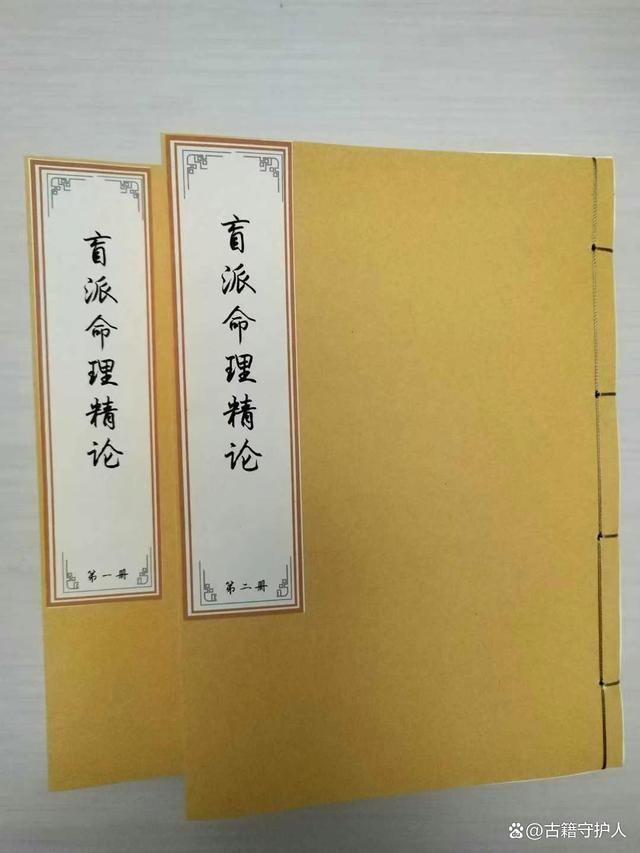 盲派命理精论
第一册
盲派命理精论
第二册
@古籍守护人